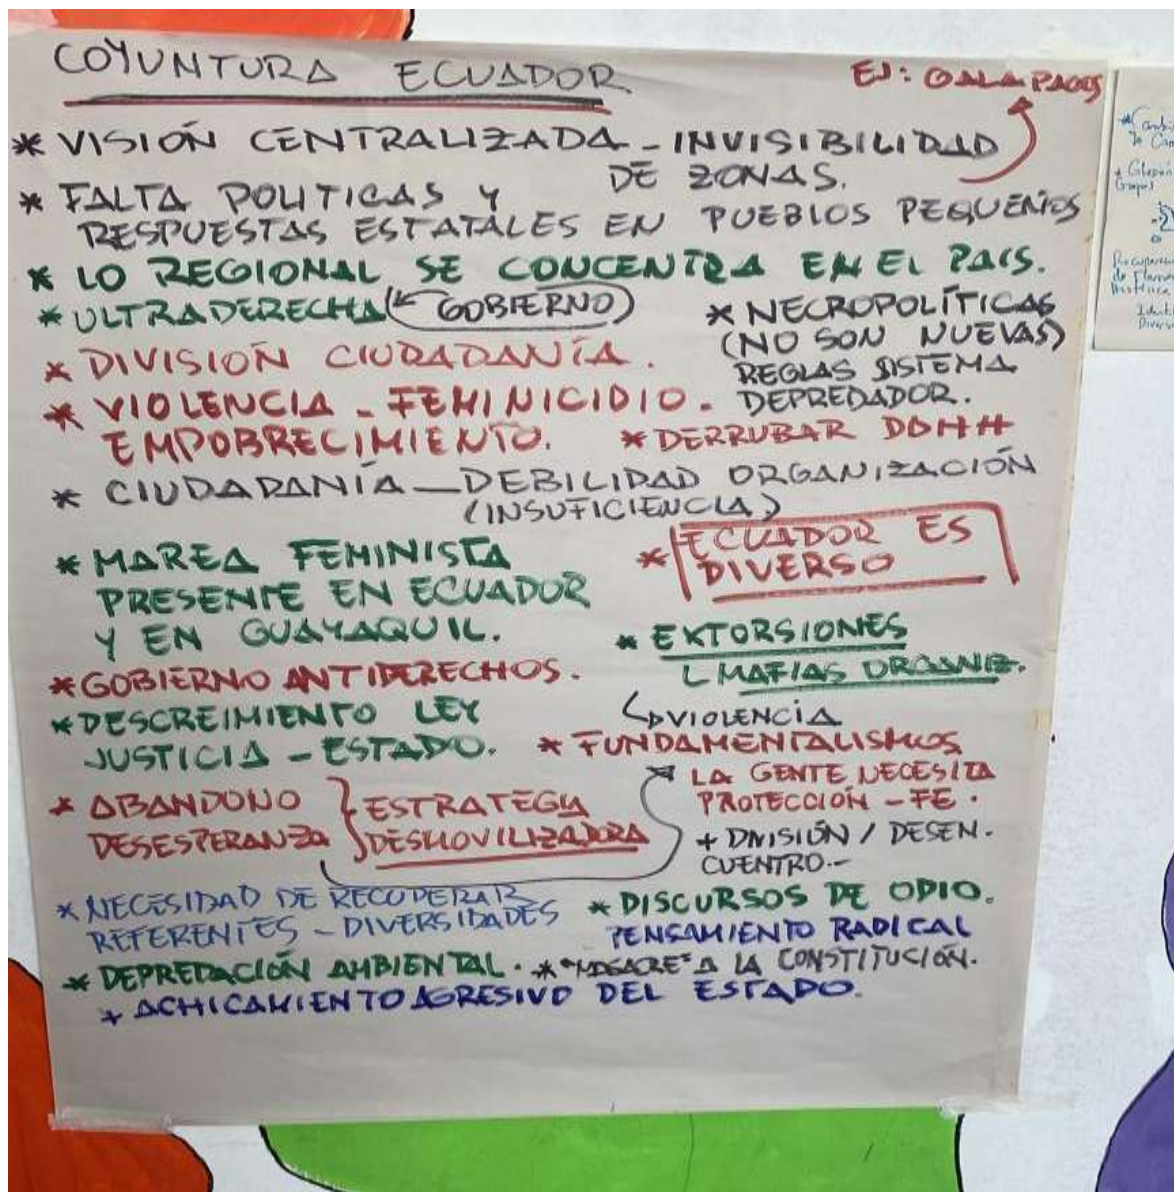 COYUNTURA ECUADOR
EJ: GALAPAGOS
* VISIÓN CENTRALIZADA - INVISIBILIDAD
DE ZONAS.
* FALTA POLITICAS Y
RESPUESTAS ESTATALES EN PUEBLOS PEQUEÑOS
* LO REGIONAL SE CONCENTRA EN EL PAIS.
* ULTRADERECHA (← GOBIERNO)
* DIVISIÓN CIUDADANÍA.
* VIOLENCIA - FEMINICIDIO -
EMPOBRECIMIENTO.
* NECROPOLÍTICAS
(NO SON NUEVAS)
REGLAS SISTEMA
DEPREDADOR.
* DERRUBAR DDHH
* CIUDADANÍA - DEBILIDAD ORGANIZACIÓN
(INSUFICIENCIA)
* MAREA FEMINISTA
PRESENTE EN ECUADOR
Y EN GUAYAQUIL.
* ECUADOR ES
DIVERSO
* EXTORSIONES
MAFIAS ORGANIZ.
VIOLENCIA
* GOBIERNO ANTIDERECHOS.
* DESCREIMIENTO LEY
JUSTICIA - ESTADO.
* FUNDAMENTALISMOS
LA GENTE NECESITA
PROTECCIÓN - FE.
+ DIVISIÓN / DESEN.
CUENTRO.-
* ABANDONO
DESESPERANZA
ESTRATEGIA
DESMOVILIZADORA
* NECESIDAD DE RECUPERAR
REFERENTES - DIVERSIDADES
* DISCURSOS DE ODIO.
PENSAMIENTO RADICAL
* DEPREDACIÓN AMBIENTAL. * "MASACRE" A LA CONSTITUCIÓN.
+ ACHICAMIENTO AGRESIVO DEL ESTADO.